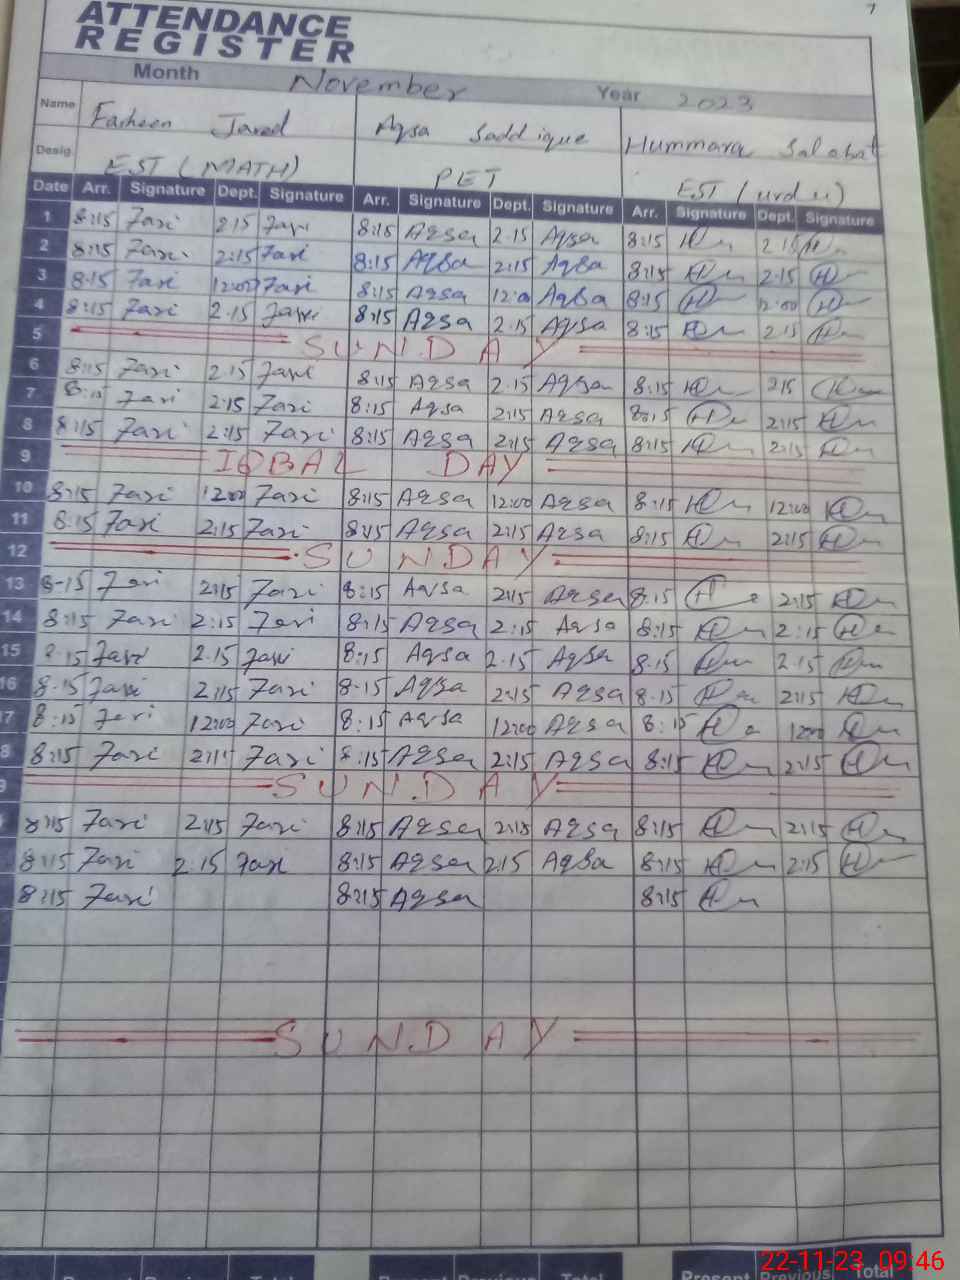 ATTENDANCE
REGISTER
Month November Year 2023
Name Farheen Javed Aqsa Saddique Hummara Salabat
Desig. EST (MATH) PET EST (urdu)
Date Arr. Signature Dept. Signature Arr. Signature Dept. Signature Arr. Signature Dept. Signature
1 8:15 Fari 2:15 Fari 8:15 Aqsa 2:15 Aqsa 8:15 2:15
2 8:15 Fari 2:15 Fari 8:15 Aqsa 2:15 Aqsa 8:15 2:15
3 8:15 Fari 12:00 Fari 8:15 Aqsa 12:00 Aqsa 8:15 12:00
4 8:15 Fari 2:15 Fari 8:15 Aqsa 2:15 Aqsa 8:15 2:15
5 SUNDAY
6 8:15 Fari 2:15 Fari 8:15 Aqsa 2:15 Aqsa 8:15 2:15
7 8:15 Fari 2:15 Fari 8:15 Aqsa 2:15 Aqsa 8:15 2:15
8 8:15 Fari 2:15 Fari 8:15 Aqsa 2:15 Aqsa 8:15 2:15
9 IQBAL DAY
10 8:15 Fari 12:00 Fari 8:15 Aqsa 12:00 Aqsa 8:15 12:00
11 8:15 Fari 2:15 Fari 8:15 Aqsa 2:15 Aqsa 8:15 2:15
12 SUNDAY
13 8-15 Fari 2:15 Fari 8:15 Aqsa 2:15 Aqsa 8:15 2:15
14 8:15 Fari 2:15 Fari 8:15 Aqsa 2:15 Aqsa 8:15 2:15
15 8.15 Fari 2.15 Fari 8:15 Aqsa 2.15 Aqsa 8.15 2.15
16 8.15 Fari 2:15 Fari 8.15 Aqsa 2:15 Aqsa 8.15 2:15
17 8:15 Fari 12:00 Fari 8:15 Aqsa 12:00 Aqsa 8:15 12:00
8 8:15 Fari 2:15 Fari 8:15 Aqsa 2:15 Aqsa 8:15 2:15
9 SUNDAY
8:15 Fari 2:15 Fari 8:15 Aqsa 2:15 Aqsa 8:15 2:15
8:15 Fari 2:15 Fari 8:15 Aqsa 2:15 Aqsa 8:15 2:15
8:15 Fari 8:15 Aqsa 8:15
SUNDAY
Present Previous Total Present Previous Total Present Previous Total
22-11-23 09:46